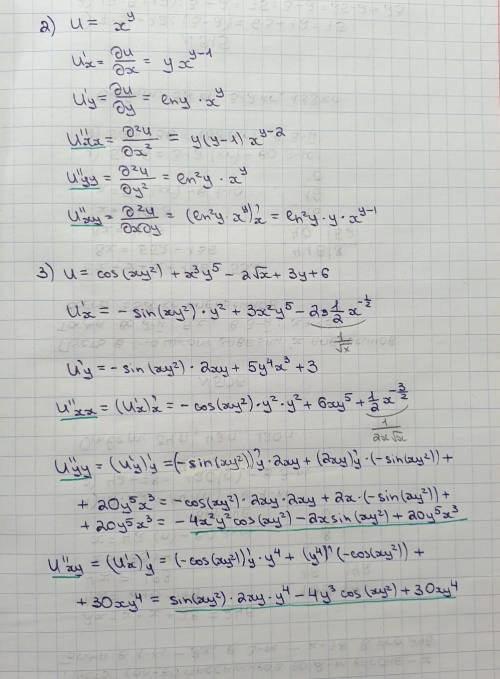 2) u = x^y
u'x = ∂u/∂x = y x^(y-1)
u'y = ∂u/∂y = ln y · x^y
u''xx = ∂²u/∂x² = y(y-1) x^(y-2)
u''yy = ∂²u/∂y² = ln²y · x^y
u''xy = ∂²u/∂x∂y = (ln²y · x^y)'x = ln²y · y · x^(y-1)
3) u = cos(xy²) + x³y⁵ - 2√x + 3y + 6
u'x = - sin(xy²) · y² + 3x²y⁵ - 2 · 1/2 x^(-1/2)
1/√x
u'y = - sin(xy²) · 2xy + 5y⁴x³ + 3
u''xx = (u'x)'x = - cos(xy²) · y² · y² + 6xy⁵ + 1/2 x^(-3/2)
1/(2x√x)
u''yy = (u'y)'y = (- sin(xy²))'y · 2xy + (2xy)'y · (- sin(xy²)) +
+ 20y⁵x³ = - cos(xy²) · 2xy · 2xy + 2x · (- sin(xy²)) +
+ 20y⁵x³ = - 4x²y² cos(xy²) - 2x sin(xy²) + 20y⁵x³
u''xy = (u'x)'y = (- cos(xy²))'y · y⁴ + (y⁴)' (- cos(xy²)) +
+ 30xy⁴ = sin(xy²) · 2xy · y⁴ - 4y³ cos(xy²) + 30xy⁴